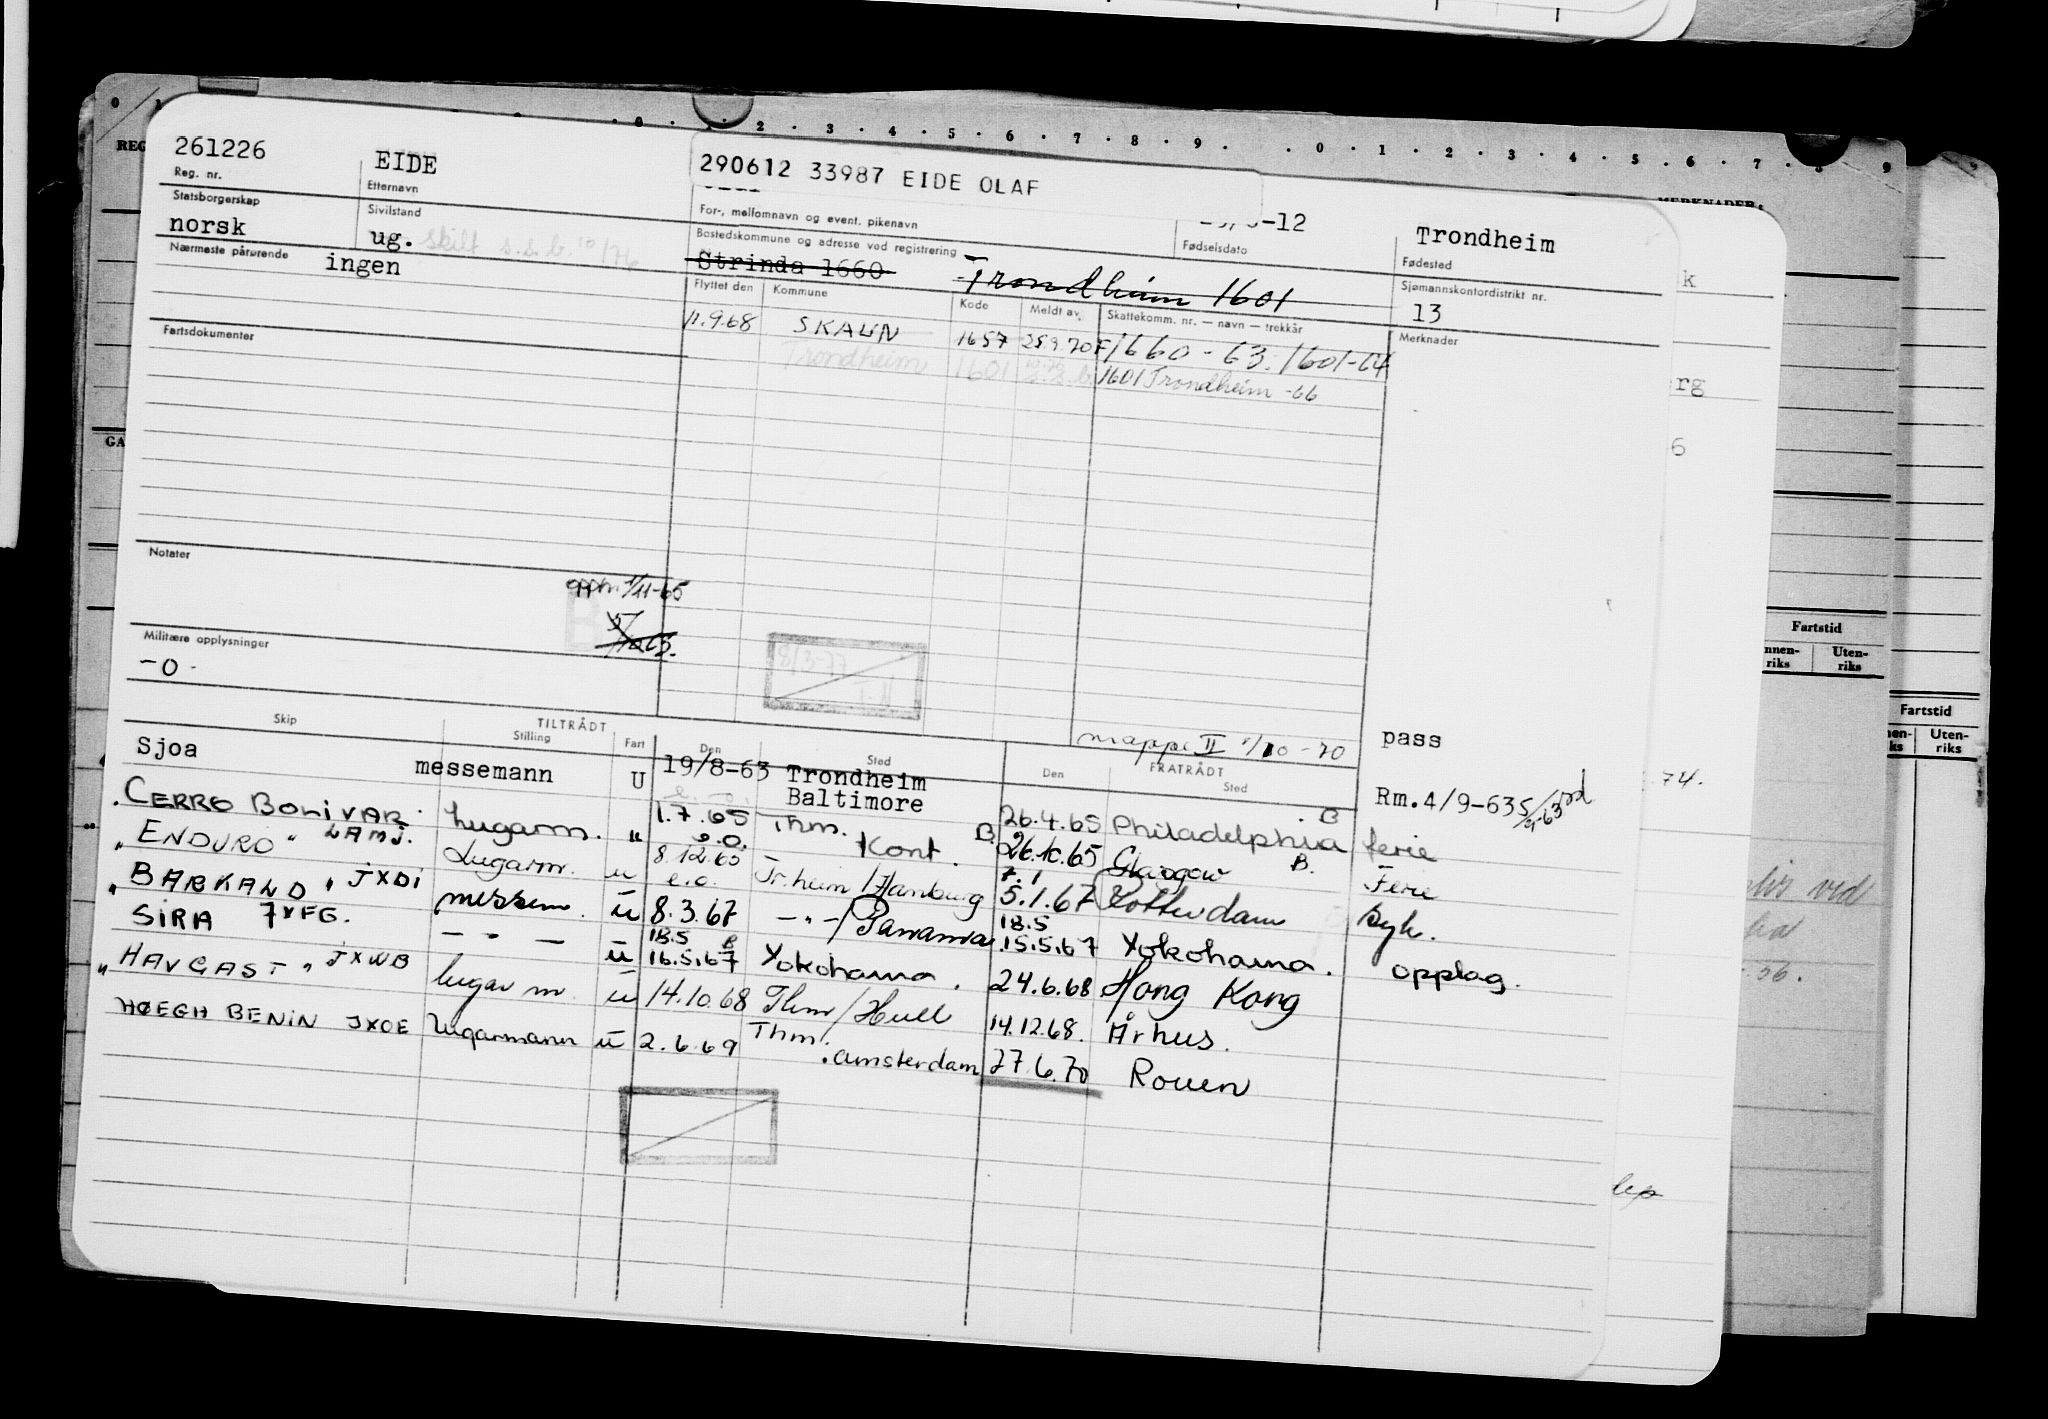 0 · 1 · 2 · 3 · 4 · 5 · 6 · 7 · 8 · 9 · · 0 · 1 · 2 · 3 · 4 · 5 · 6 · 7 · 8 9
REG
MERKNADER:
261226 EIDE 290612 33987 EIDE OLAF
Reg. nr. Etternavn For-, mellomnavn og event. pikenavn -12 Trondheim
Fødselsdato Fødested
Statsborgerskap Sivilstand Bostedskommune og adresse ved registrering Sjømannskontordistrikt nr.
norsk ug. skilt s.s.b. 10/76 Strinda 1660 Trondheim 1601 13
Nærmeste pårørende ingen
Flyttet den Kommune Kode Meldt av Skattekomm. nr. — navn — trekkår Merknader
11.9.68 SKAUN 1657 25.9.70 F/1660-63. 1601-64
Trondheim 1601 1601 Trondheim -66
Fartsdokumenter
Notater
1/11-65
Militære opplysninger
-0-
8/3-77
mappe II 1/10-70 pass
Skip TILTRÅDT FRATRÅDT
Stilling Fart Den Sted Den Sted
Sjoa messemann U 19/8-63 Trondheim Baltimore 26.4.65 Philadelphia B. ferie Rm.4/9-63
CERRO BOLIVAR. lugarm. " 1.7.65 e.o. Thm. Kont. B. 26.10.65 Glasgow B. Ferie
"ENDURO" LAMJ. Lugarm. u 8.12.65 e.o. Tr.heim/Hamburg 7.1 5.1.67 Rotterdam syk.
"BARKAND" JXDI messem. ū 8.3.67 -"-/Panama 18.5 15.5.67 Yokohama. opplag.
SIRA JXFG. - " - ū 18.5 B 16.5.67 Yokohama. 24.6.68 Hong Kong
"HAVGAST" JXWB lugarm. ū 14.10.68 Thm/Hull 14.12.68. Århus.
HØEGH BENIN JXOE Lugarmann ū 2.6.69 Thm. amsterdam 27.6.70 Rouen
k
rg
6
GA
Fartstid
nnen-riks Uten-riks
Fartstid
nen-ks Uten-riks
74.
ved
56.